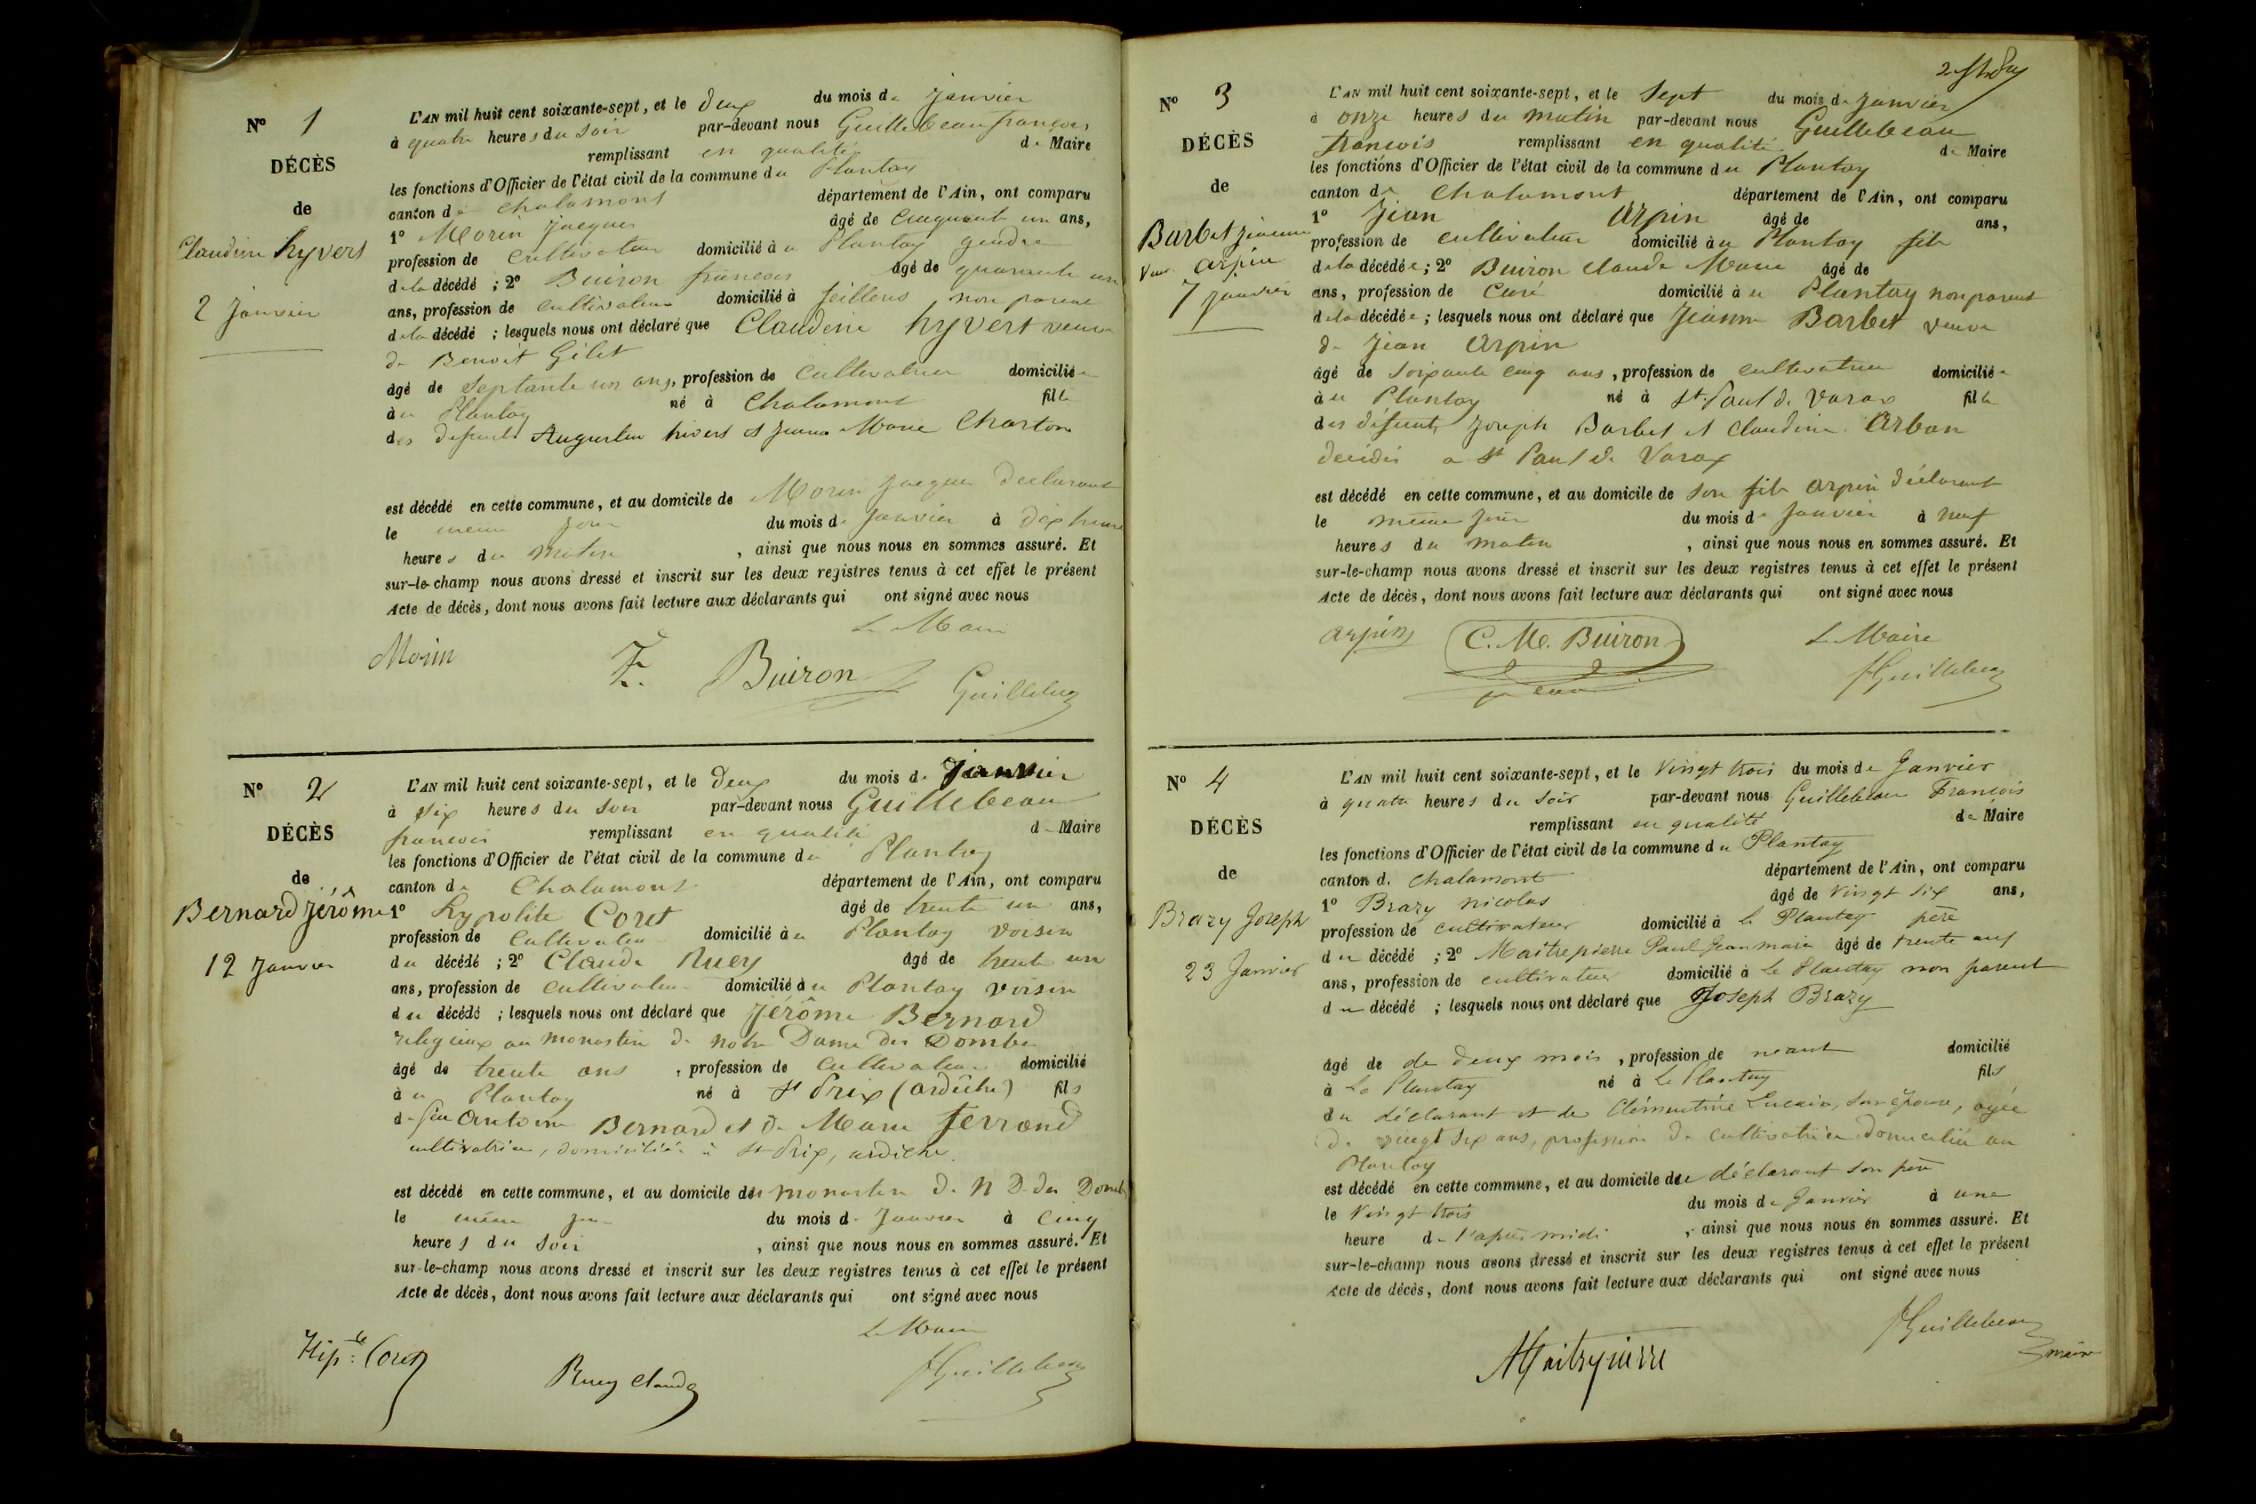 N° 1
DÉCÈS
de
Claudine hyvert
2 Janvier
L'AN mil huit cent soixante-sept, et le deux du mois de Janvier
à quatre heures du soir par-devant nous Guillebeau françois
remplissant en qualité de Maire
les fonctions d'Officier de l'état civil de la commune du Plantay
canton de Chalamont département de l'Ain, ont comparu
1° Morin Jacques âgé de cinquante un ans,
profession de cultivateur domicilié au Plantay gendre
de la décédé ; 2° Buiron françois âgé de quarante un
ans, profession de cultivateur domicilié à feillens, non parent
de la décédé ; lesquels nous ont déclaré que Claudine hyvert veuve
de Benoit Gélet
âgé de septante un ans, profession de cultivatrice domiciliée
au Plantay né à Chalamont fille
des défunts Augustin hivert et Jeanne Marie Charton
est décédé en cette commune, et au domicile de Morin Jacques déclarant
le même jour du mois de Janvier à dix heures
heures du matin , ainsi que nous nous en sommes assuré. Et
sur-le-champ nous avons dressé et inscrit sur les deux registres tenus à cet effet le présent
Acte de décès, dont nous avons fait lecture aux déclarants qui ont signé avec nous
Le Maire
Morin Buiron Guillebeau
N° 2
DÉCÈS
de
Bernard Jérôme
12 Janvier
L'AN mil huit cent soixante-sept, et le deux du mois de Janvier
à six heures du soir par-devant nous Guillebeau
françois remplissant en qualité de Maire
les fonctions d'Officier de l'état civil de la commune du Plantay
canton de Chalamont département de l'Ain, ont comparu
1° hypolite Coret âgé de trente un ans,
profession de cultivateur domicilié au Plantay voisin
du décédé ; 2° Claude Ruey âgé de trente un
ans, profession de cultivateur domicilié au Plantay voisin
du décédé ; lesquels nous ont déclaré que Jérôme Bernard
religieux au monastère de notre Dame des Dombes
âgé de trente ans , profession de cultivateur domicilié
au Plantay né à St Prix (ardèche) fils
de feu Antoine Bernard et de Marie ferrand
cultivatrice, domiciliée à St Prix, ardèche.
est décédé en cette commune, et au domicile du monastère de N D des Dombes
le même jour du mois de Janvier à cinq
heures du soir , ainsi que nous nous en sommes assuré. Et
sur-le-champ nous avons dressé et inscrit sur les deux registres tenus à cet effet le présent
Acte de décès, dont nous avons fait lecture aux déclarants qui ont signé avec nous
Le Maire
Hip.te Coret Ruey Claude fGuillebeau
N° 3
DÉCÈS
de
Barbet Jeanne
Veuve arpin
7 Janvier
L'AN mil huit cent soixante-sept, et le sept du mois de Janvier
à onze heures du matin par-devant nous Guillebeau
françois remplissant en qualité de Maire
les fonctions d'Officier de l'état civil de la commune du Plantay
canton de Chalamont département de l'Ain, ont comparu
1° Jean arpin âgé de ans,
profession de cultivateur domicilié au Plantay fils
de la décédée ; 2° Buiron Claude Marie âgé de
ans, profession de Curé domicilié au Plantay non parent
de la décédée ; lesquels nous ont déclaré que Jeanne Barbet veuve
de Jean arpin
âgé de soixante cinq ans , profession de cultivatrice domiciliée
au Plantay né à St. Paul de Varax fille
des défunts Joseph Barbet et Claudine Arban
décédés a St Paul de Varax
est décédé en cette commune, et au domicile de son fils arpin déclarant
le même jour du mois de Janvier à neuf
heures du matin , ainsi que nous nous en sommes assuré. Et
sur-le-champ nous avons dressé et inscrit sur les deux registres tenus à cet effet le présent
Acte de décès, dont nous avons fait lecture aux déclarants qui ont signé avec nous
arpin C. M. Buiron Le Maire
fGuillebeau
N° 4
DÉCÈS
de
Brazy Joseph
23 Janvier
L'AN mil huit cent soixante-sept, et le vingt trois du mois de Janvier
à quatre heures du soir par-devant nous Guillebeau François
remplissant en qualité de Maire
les fonctions d'Officier de l'état civil de la commune du Plantay
canton de Chalamont département de l'Ain, ont comparu
1° Brazy nicolas âgé de vingt six ans,
profession de cultivateur domicilié à le Plantay père
du décédé ; 2° Maitrepierre Paul Jean marie âgé de trente neuf
ans, profession de cultivateur domicilié à Le Plantay non parent
du décédé ; lesquels nous ont déclaré que Joseph Brazy
âgé de de deux mois , profession de néant domicilié
à Le Plantay né à Le Plantay fils
du déclarant et de Clémentine Lucain, son épouse, agée
de vingt six ans, profession de cultivatrice domiciliée au
Plantay
est décédé en cette commune, et au domicile du déclarant son père
le vingt trois du mois de Janvier à une
heure de l'après midi , ainsi que nous nous en sommes assuré. Et
sur-le-champ nous avons dressé et inscrit sur les deux registres tenus à cet effet le présent
Acte de décès, dont nous avons fait lecture aux déclarants qui ont signé avec nous
Maitrepierre fGuillebeau
maire